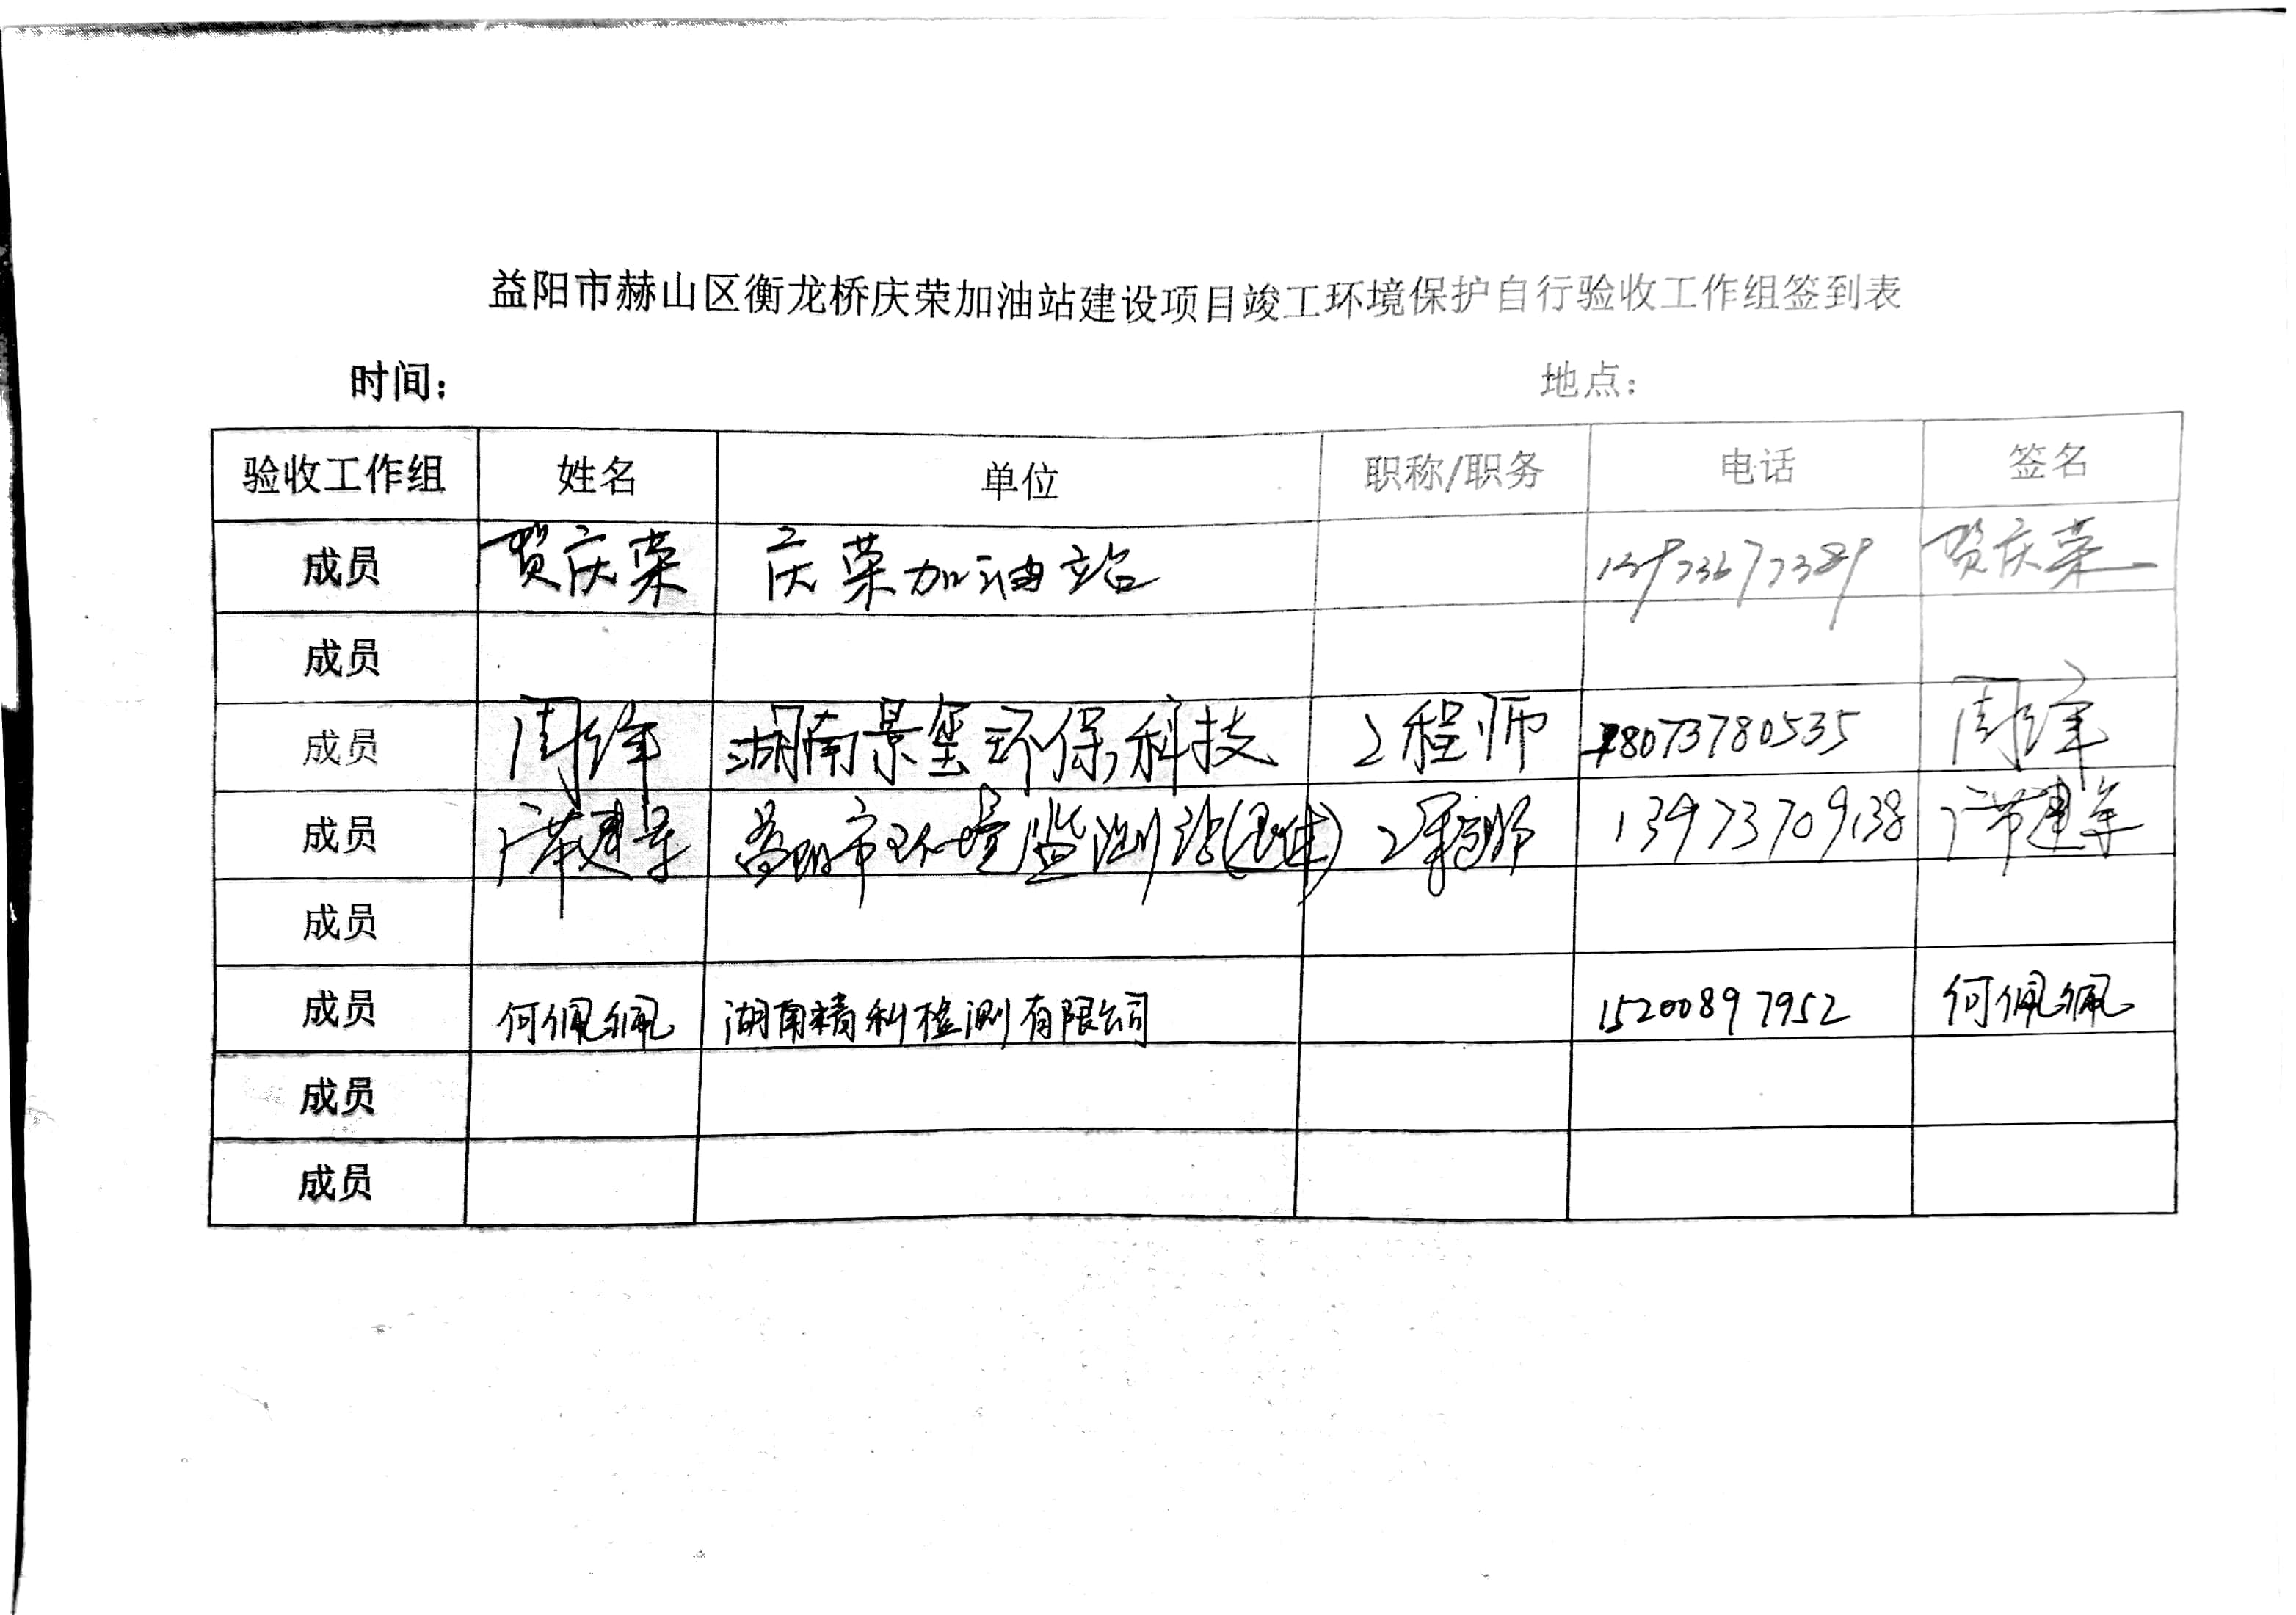 益阳市赫山区衡龙桥庆荣加油站建设项目竣工环境保护自行验收工作组签到表
时间： 地点：
验收工作组 姓名 单位 职称/职务 电话 签名
成员 贺庆荣 庆荣加油站 13973677389 贺庆荣
成员
成员 周锋 湖南景玺环保科技 工程师 18073780535 周锋
成员 建军 益阳市环境监测站(退休) 工程师 13973709138 建军
成员
成员 何佩佩 湖南精科检测有限公司 15200897952 何佩佩
成员
成员